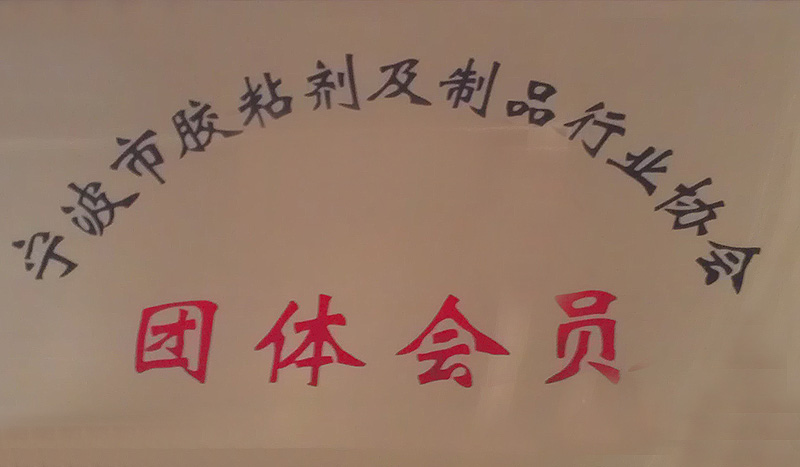 宁波市胶粘剂及制品行业协会
团体会员